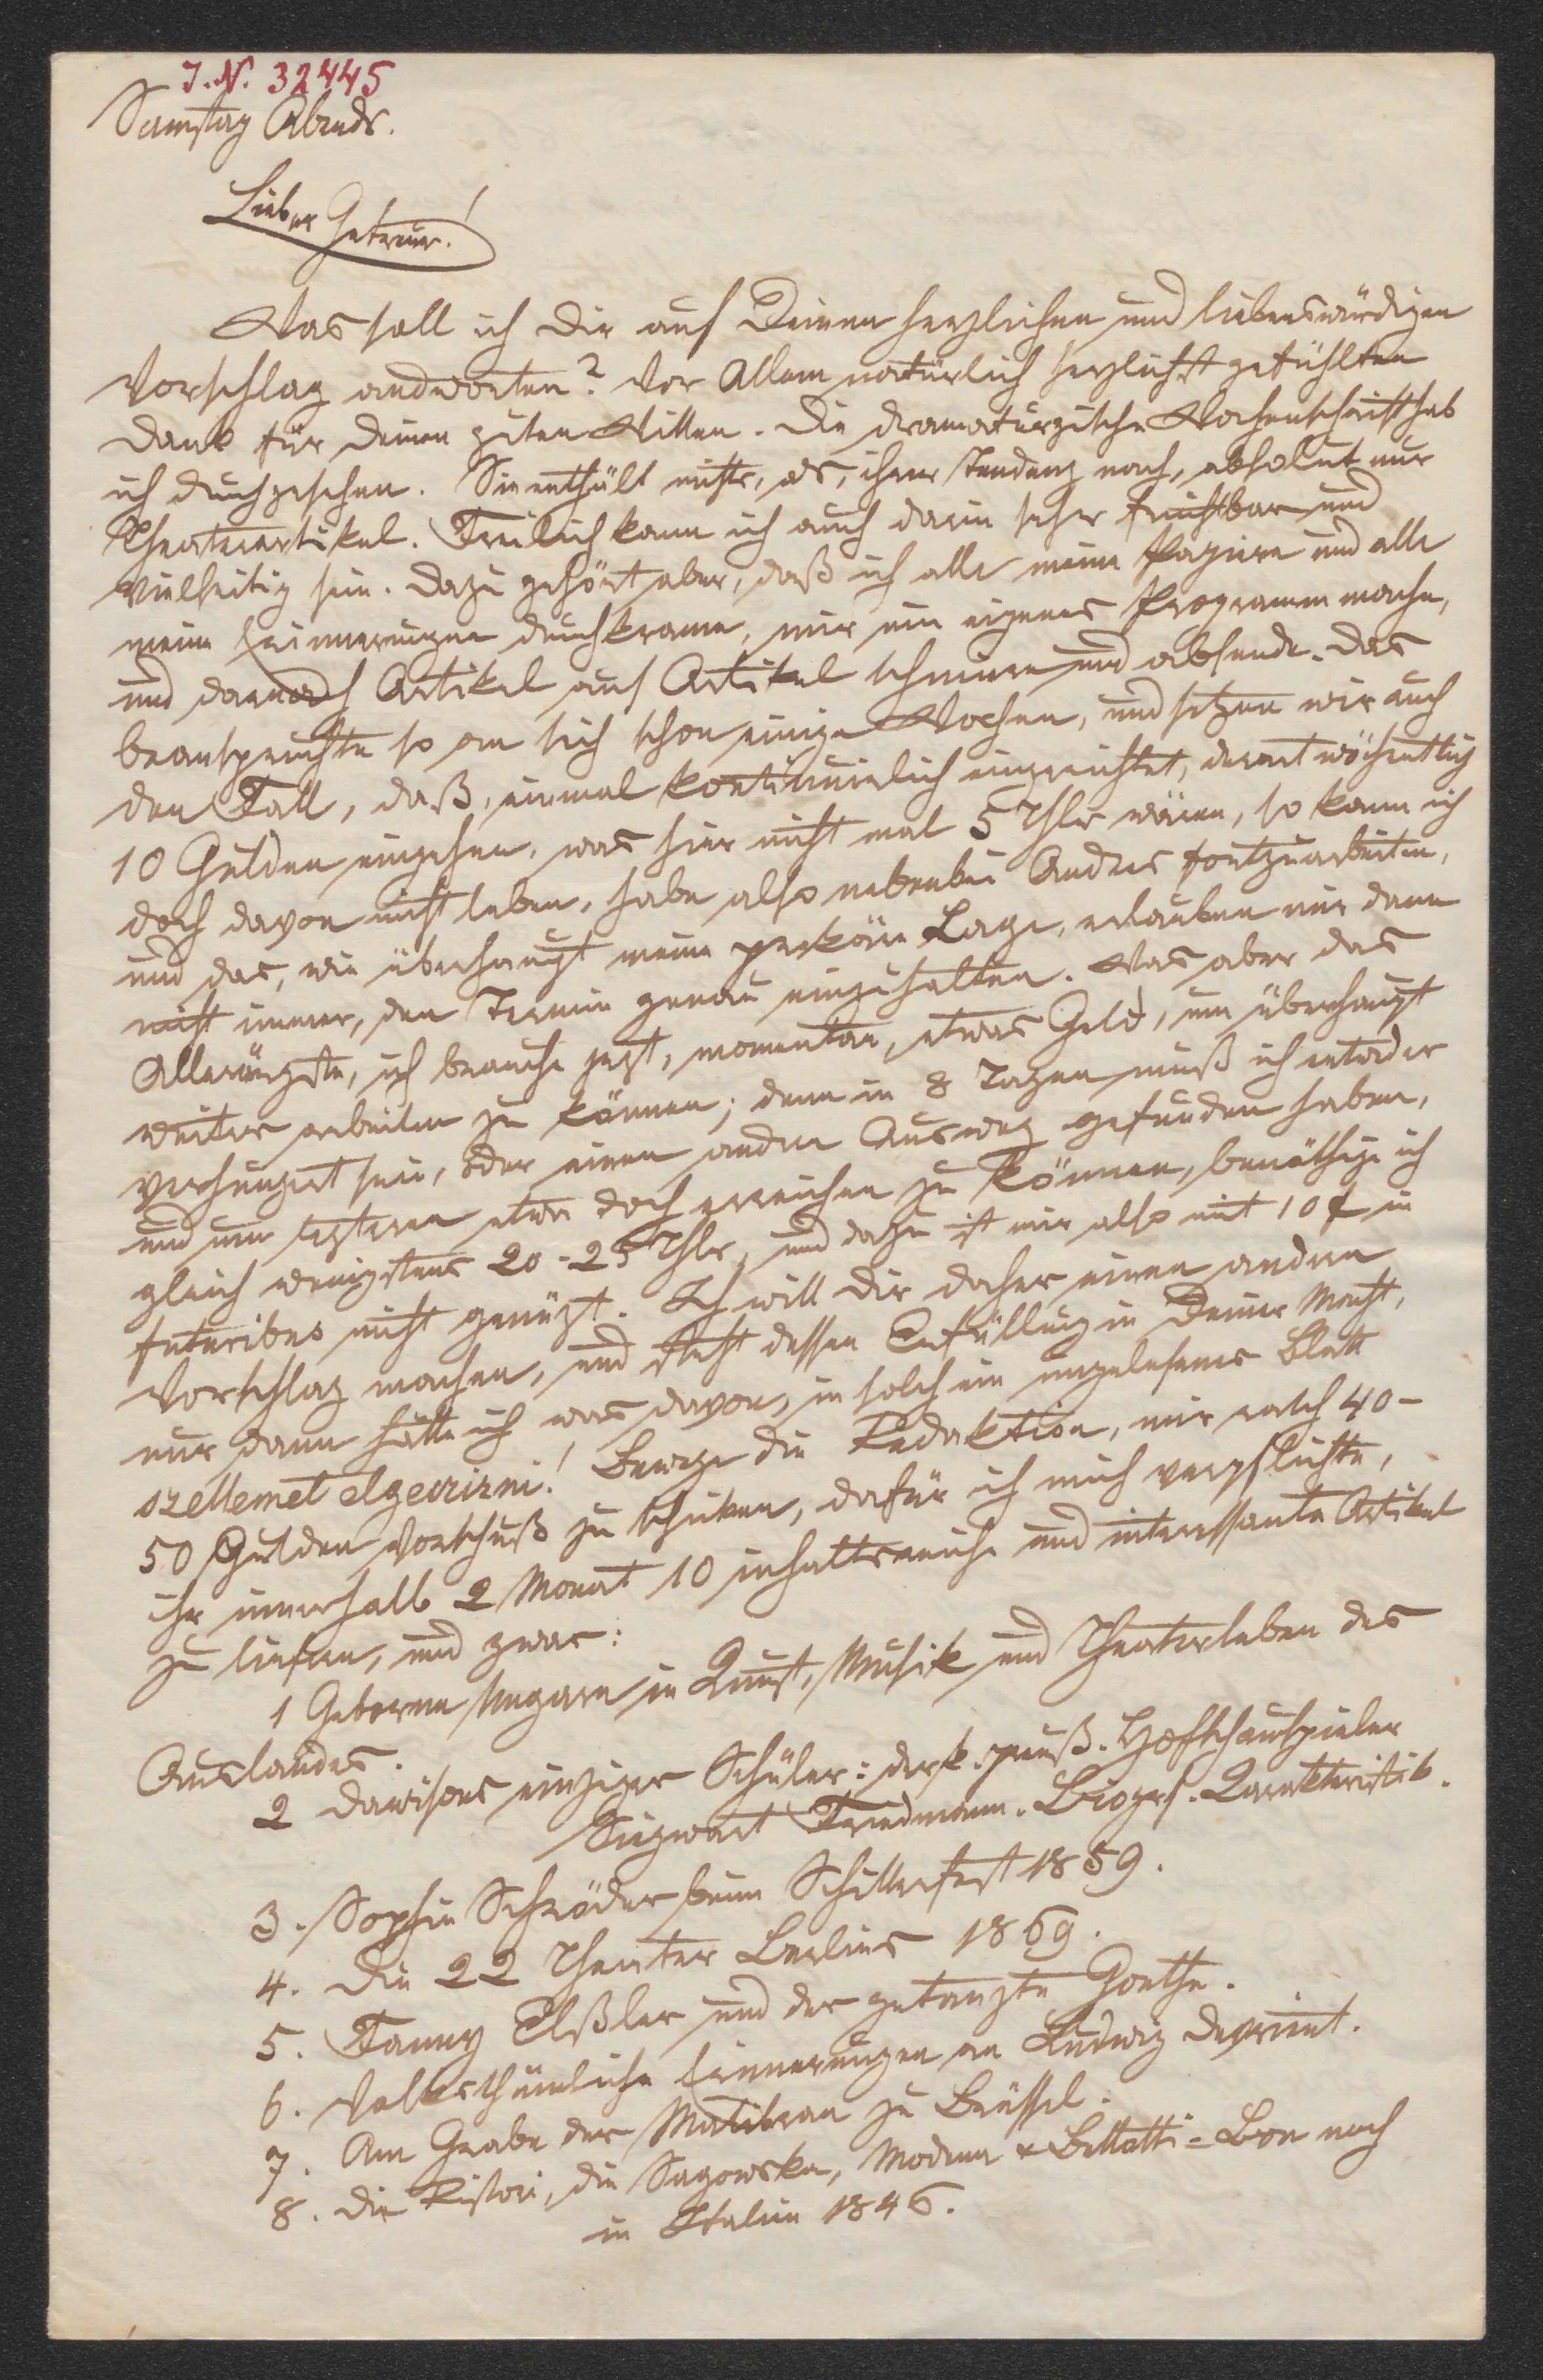 J. N. 32445
Samstag Abends.
Lieber Getreuer!
Was soll ich Dir auf Deinen herzlichen und liebenswürdigen
Vorschlag andworten? Vor Allem natürlich herzlichst gefühlten
Dank für Deinen guten Willen. Die dramaturgische Wochenschrift hab
ich durchgesehen. Sie enthält nichts, als, ihrer Tendenz nach, absolut nur
Theaterartikel. Freilich kann ich auch darin sehr fruchtbar und
vielseitig sein. Dazu gehört aber, daß ich alle meine Papiere und alle
meine Erinnerungen durchkrame, mir ein eigenes Programm mache,
und darnach Artikel auf Artikel schmiere und absende. Das
beanspruchte so an sich schon einige Wochen, und setzen wir auch
den Fall, daß, einmal kontinuirlich eingerichtet, derart wöchentlich
10 Gulden eingehen, was hier nicht mal 5 Thlr wären, so kann ich
doch davon nicht leben, habe also nebenbei Andres fortzuarbeiten,
und das, wie überhaupt meine prekäre Lage, erlauben mir dann
nicht immer, den Termin genau einzuhalten. Was aber das
Allerärgste, ich brauche jezt, momentan, etwas Geld, um überhaupt
weiter arbeiten zu können; denn in 8 Tagen muß ich entweder
verhungert sein, oder einen andern Ausweg gefunden haben,
und um lezteren etwa doch erreichen zu können, benöthige ich
gleich wenigstens 20-25 Thlr, und dazu ist mir also mit 10 f in
futuribus nicht genüzt. Ich will Dir daher einen andern
Vorschlag machen, und steht dessen Erfüllung in Deiner Macht,
nur dann hätte ich was davon, in solch ein ungelesenes Blatt
szellemet elgeoizni! Bewege die Redaktion, mir rasch 40-
50 Gulden Vorschuß zu schicken, dafür ich mich verpflichte,
ihr innerhalb 2 Monat 10 inhaltsreiche und interessante Artikel
zu liefern, und zwar:
1 Geborne Ungarn in Kunst, Musik und Theaterleben des
Auslandes.
2 Dawisons einziger Schüler: der k. preuß. Hofschauspieler
Siegwart Friedmann. Biogrf. Karakteristik.
3. Sophie Schröder beim Schillerfest 1859.
4. Die 22 Theater Berlins 1869.
5. Fanny Elßler und der getanzte Goethe.
6. Volksthümliche Erinnerungen an Ludwig Devrient.
7. Am Grabe der Malibran zu Brüssel.
8. Die Ristori, die Sagowska, Modena & Bellotti=Bon noch
in Italien 1846.